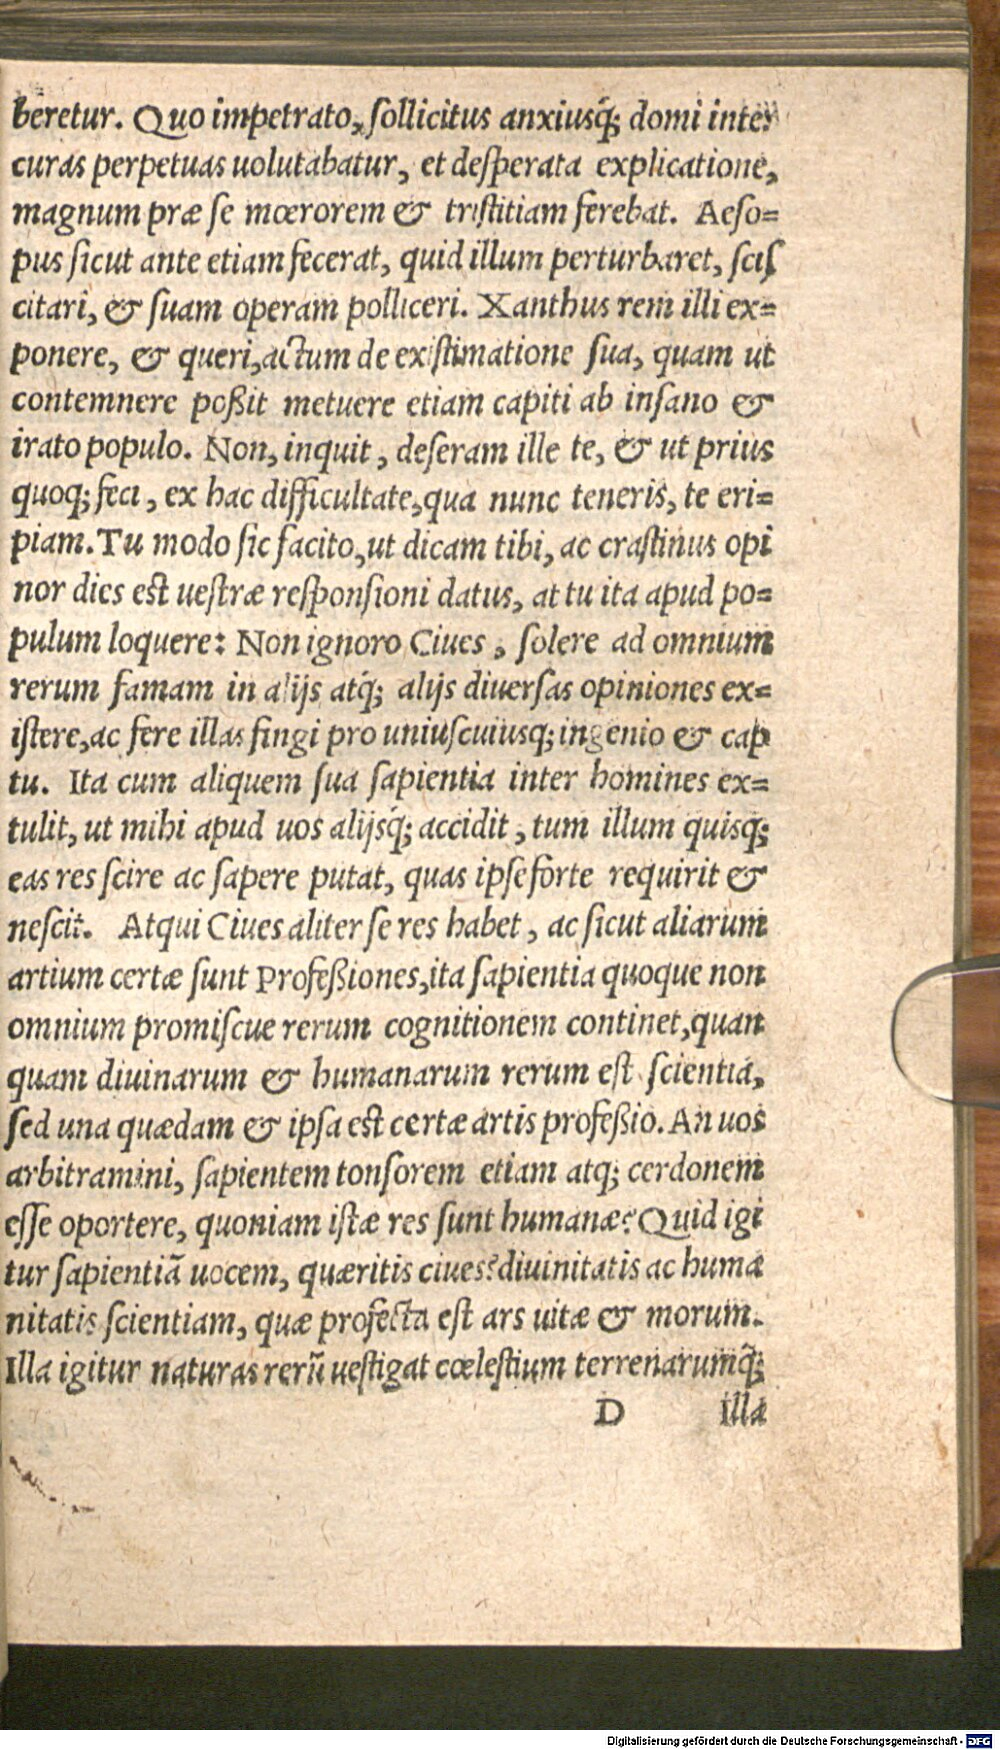 beretur. Quo impetrato, ſollicitus anxiusq́; domi inter
curas perpetuas uolutabatur, et deſperata explicatione,
magnum præ ſe mœrorem & triſtitiam ferebat. Aeſo=
pus ſicut ante etiam fecerat, quid illum perturbaret, ſciſ
citari, & ſuam operam polliceri. Xanthus rem illi ex=
ponere, & queri, actum de exiſtimatione ſua, quam ut
contemnere poßit metuere etiam capiti ab inſano &
irato populo. Non, inquit, deſeram ille te, & ut prius
quoq; feci, ex hac difficultate, qua nunc teneris, te eri=
piam. Tu modo ſic facito, ut dicam tibi, ac craſtinus opi
nor dies est ueſtræ reſponſioni datus, at tu ita apud po=
pulum loquere: Non ignoro Ciues, ſolere ad omnium
rerum famam in alijs atq́; alijs diuerſas opiniones ex=
iſtere, ac fere illas fingi pro uniuſcuiusq; ingenio & cap
tu. Ita cum aliquem ſua ſapientia inter homines ex=
tulit, ut mihi apud uos alijsq́; accidit, tum illum quisq;
eas res ſcire ac ſapere putat, quas ipſe forte requirit &
neſcit. Atqui Ciues aliter ſe res habet, ac ſicut aliarum
artium certæ ſunt Profeßiones, ita ſapientia quoque non
omnium promiſcue rerum cognitionem continet, quan
quam diuinarum & humanarum rerum eſt ſcientia,
ſed una quædam & ipſa est certæ artis profeßio. An uos
arbitramini, ſapientem tonſorem etiam atq; cerdonem
eſſe oportere, quoniam iſtæ res ſunt humanæ? Quid igi
tur ſapientiã uocem, quæritis ciues? diuinitatis ac huma
nitatis ſcientiam, quæ profecta eſt ars uitæ & morum.
Illa igitur naturas rerũ ueſtigat cœleſtium terrenarumq́;
D illa
Digitalisierung gefördert durch die Deutsche Forschungsgemeinschaft - DFG